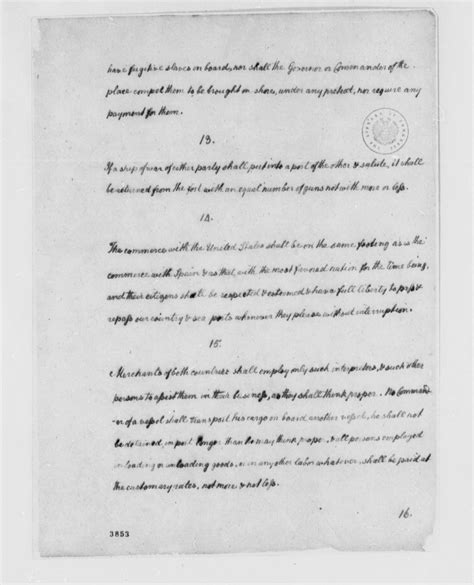 have fugitive slaves on board, nor shall the Governor or Commander of the
place compel them to be brought on shore, under any pretext, nor require any
payment for them.
13.
If a ship of war of either party shall put into a port of the other & salute, it shall
be returned from the fort with an equal number of guns not with more or less.
14.
The commerce with the United States shall be on the same footing as is the
commerce with Spain & as that with the most favored nation for the time being,
and their citizens shall be respected & esteemed & have full liberty to pass &
repass our country & sea ports whenever they please without interruption.
15.
Merchants of both countries shall employ only such interpreters, & such other
persons to assist them in their business, as they shall think proper. No Command-
-er of a vessel shall transport his cargo on board another vessel, he shall not
be detained, in port longer than he may think proper, & all persons employed
in loading or unloading goods, or in any other labor whatever, shall be paid at
the customary rates, not more & not less.
16.
3853